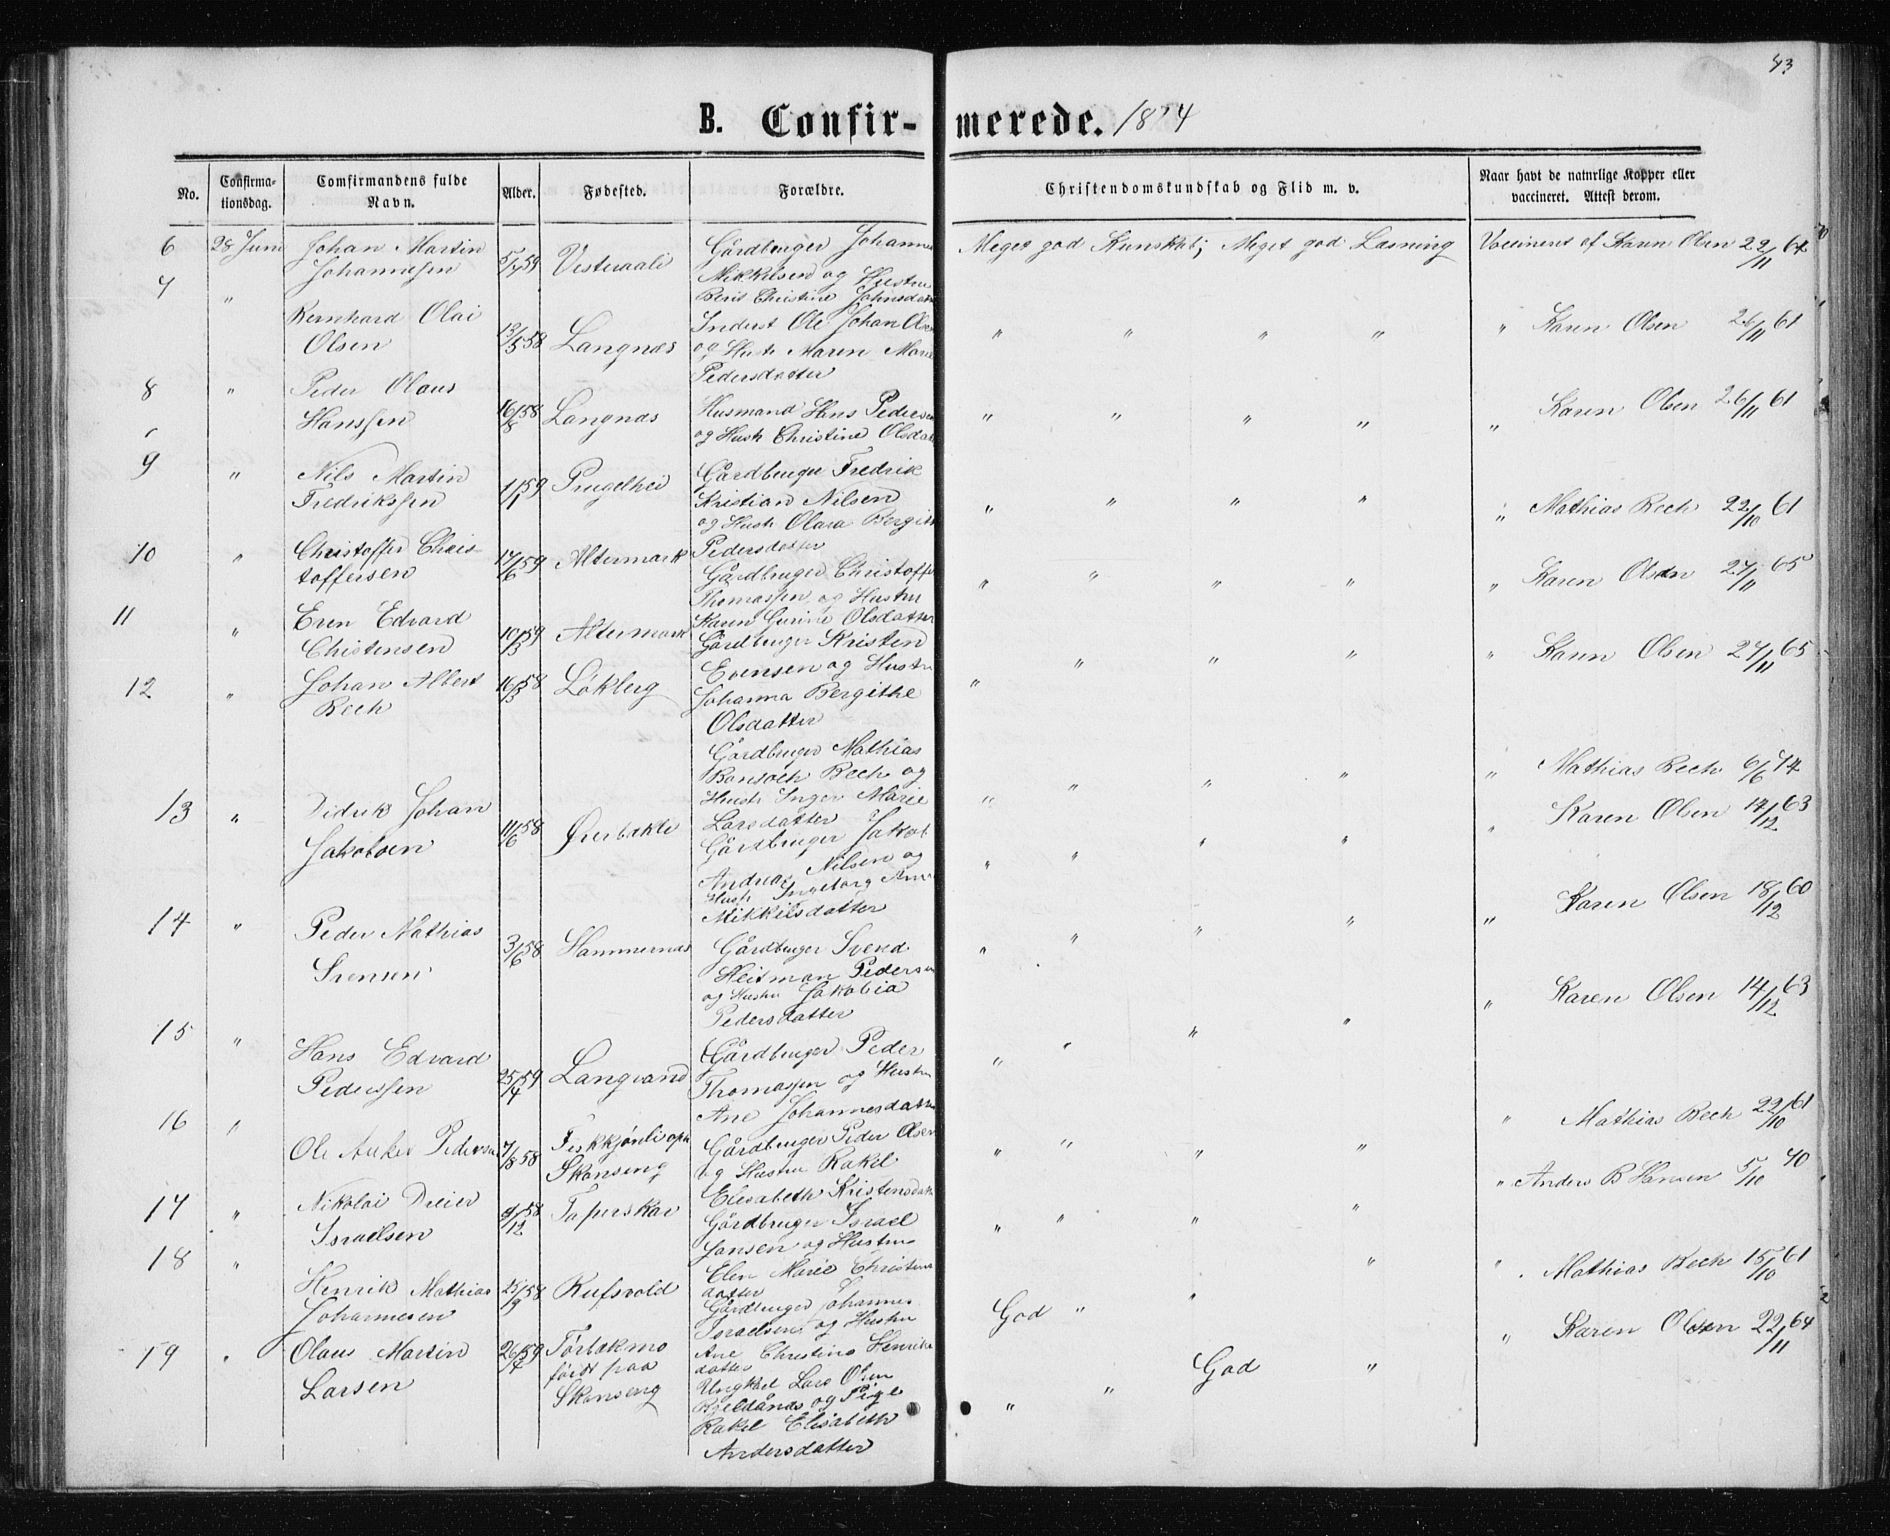 43
B. Confirmerede. 1874
No.
Confirmationsdag.
Comfirmandens fulde Navn.
Alder.
Fødested.
Forældre.
Christendomskundskab og Flid m. v.
Naar havt de naturlige Kopper eller vaccineret. Attest derom.
6 28 Juni Johan Martin Johannessen 5/7 59 Vesteraali Gårdbruger Johannes Mikkelsen og Hustru Berit Christine Johnsdatter Meget god Kunskab; Meget god Læsning Vaccineret af Karen Olsen 22/11 64
7 " Bernhard Olai Olsen 13/5 58 Langnæs Inderst Ole Johan Olsen og Hustr Maren Marie Pedersdatter " " " " " Karen Olsen 26/11 61
8 " Peder Olaus Hanssen 16/8 58 Langnæs Husmand Hans Pedersen og Hustr Christine Olsdat " " " " " Karen Olsen 26/11 61
9 " Nils Martin Fredrikssen 1/1 59 Prugelhei Gårdbruger Fredrik Kristian Nilsen og Hustr Olava Bergith Pedersdatter " " " " " Mathias Bech 22/10 61
10 " Christoffer Christoffersen 17/6 59 Altermark Gårdbruger Christoffer Thomassen og Hustru Karen Gurine Olsdatter " " " " " Karen Olsen 27/11 65
11 " Even Edvard Christensen 10/3 59 Altermark Gårdbruger Kristen Evensen og Hustru Johanna Bergithe Olsdatter " " " " " Karen Olsen 27/11 65
12 " Johan Albert Bech 16/3 58 Løkberg Gårdbruger Mathias Bech og Hustr Inger Marie Larsdatter " " " " " Mathias Bech 6/6 74
13 " Didrik Johan Jakobsen 11/6 58 Øverbakli Gårdbruger Jakob Andreas Nilsen og Hustr Ingeborg Ane Mikkelsdatter " " " " " Karen Olsen 17/12 63
14 " Peder Mathias Svensen 3/6 58 Hammernæs Gårdbruger Svend Heitman Pedersen og Hustru Jakobia Pedersdatter " " " " " Karen Olsen 18/12 60
15 " Hans Edvard Pederssen 25/4 59 Langvand Gårdbruger Peder Thomassen og Hustru Ane Johannesdatter " " " " " Karen Olsen 14/12 63
16 " Ole Anker Pedersen 7/8 58 Fiskkjønli opn Skonseng Gårdbruger Peder Olsen og Hustru Rakel Elisabeth Kristensdatt " " " " " Mathias Bech 22/10 61
17 " Nikolai Dreier Israelsen 9/12 58 Taperskar Gårdbruger Israel Jansen og Hustru Elen Marie Christina datter " " " " " Anders B Hansen 5/10 70
18 " Henrik Mathias Johannesen 25/9 58 Rufsvold Gårdbruger Johannes Israelsen og Hustru Ane Christina Henriks datter God " " " " Mathias Bech 15/10 61
19 " Olaus Martin Larsen 26/4 59 Tørbækmo født paa Skonseng Ungkarl Lars Olsen og Pige Rakel Elisabeth Andersdatter " " God " " Karen Olsen 22/11 64